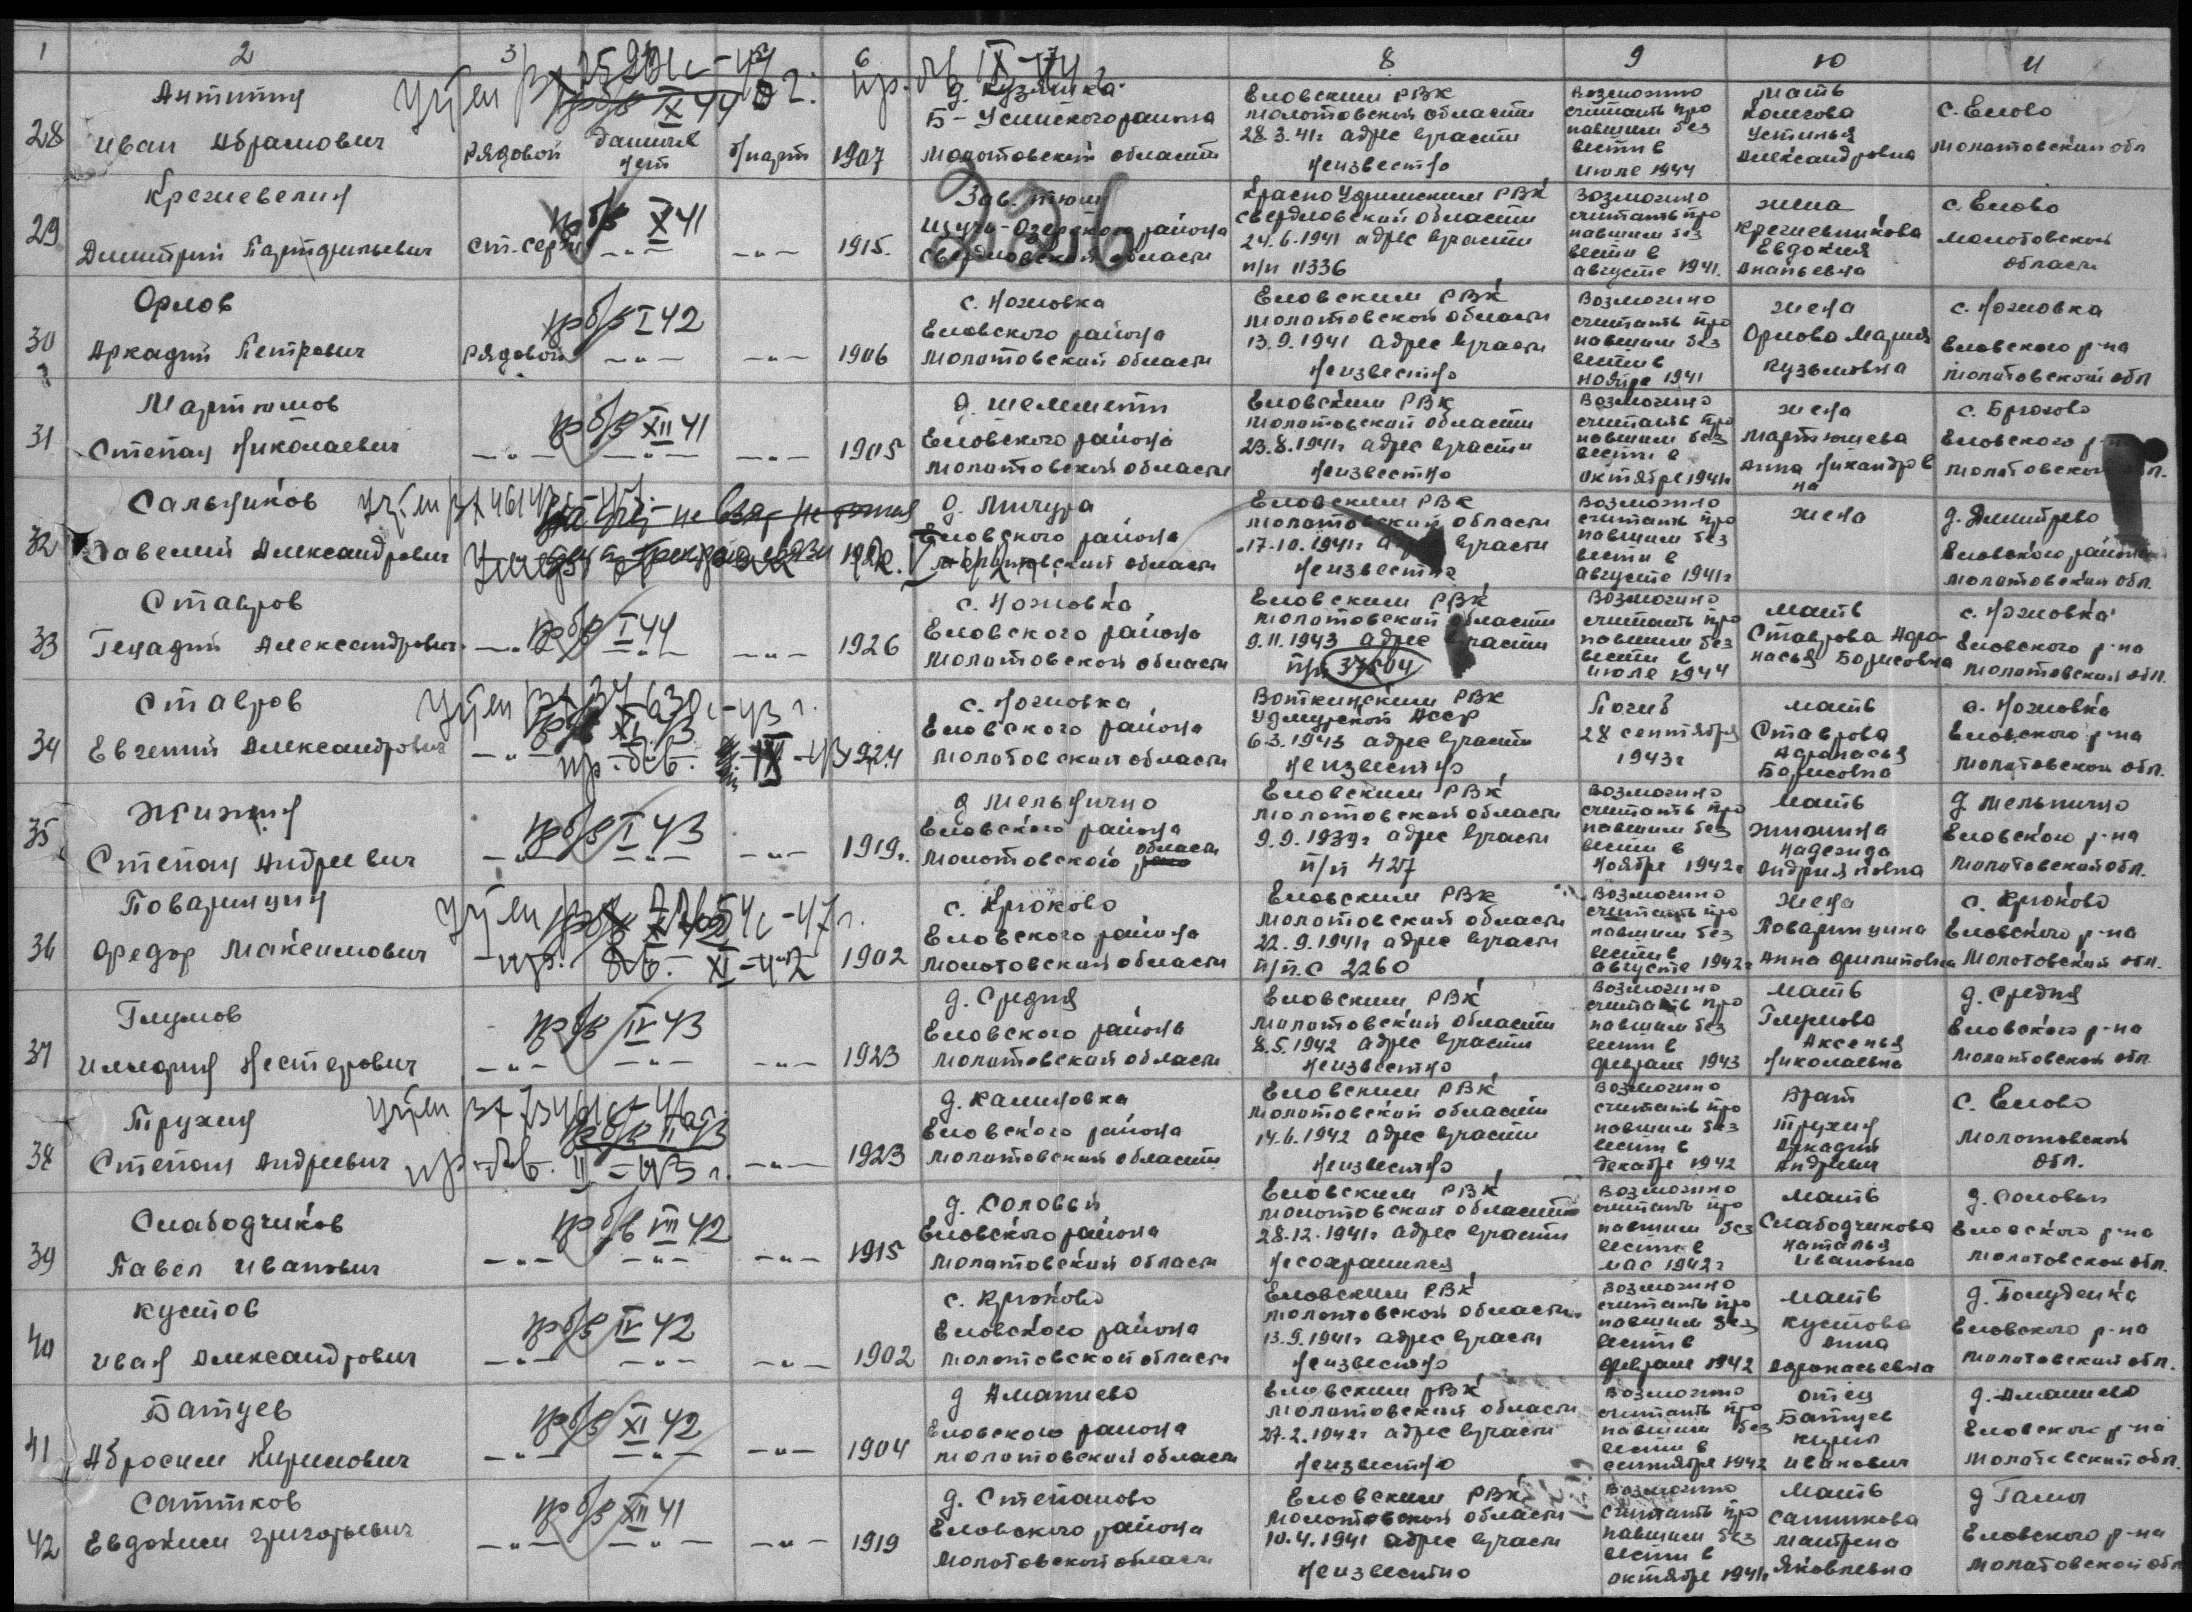 1 2 3 6 8 9 10 11
28
Антипин
Иван Абрамович
рядовой
данных
нет
б/парт
1907
Б-Усинского района
Молотовской области
Еловским РВК
Молотовской области
28.3.41г адрес в/части
неизвестно
Возможно
считать про
павшим без
вести в
июле 1944
мать
Устинья
Александровна
с. Елово
Молотовской обл
29
Дмитрий
ст. серж
пр б/в X 41
1915.
226
Щучье-Озерского района
Свердловской области
Красно Уфимским РВК
Свердловской области
24.6.1941 адрес в/части
п/п 11336
Возможно
считать про
павшим без
вести в
августе 1941.
жена
Евдокия
Ананьевна
с. Елово
Молотовской
области
30
Орлов
Аркадий Петрович
рядовой
пр б/в I 42
1906
с. Ножовка
Еловского района
Молотовской области
Еловским РВК
Молотовской области
13.9.1941 адрес в/части
неизвестно
Возможно
считать про
павшим без
вести в
ноябре 1941
жена
Орлова Мария
Кузьмовна
с. Ножовка
Еловского р-на
Молотовской обл
31
Мартюшов
Степан Николаевич
пр б/в XII 41
1905
Еловского района
Молотовской области
Еловским РВК
Молотовской области
23.8.1941г адрес в/части
неизвестно
Возможно
считать про
павшим без
вести в
октябре 1941г
жена
Мартюшева
Анна Никандров
на
Еловского
Молотовской
32
Сальников
Савелий Александрович
д. Мичура
Еловского района
Молотовской области
Еловским РВК
Молотовской области
17.10.1941г
неизвестно
Возможно
считать про
павшим без
вести в
августе 1941г
жена
д. Дмитрево
Еловского района
Молотовской обл.
33
Ставров
Генадий Александрович
пр б/в I 44
1926
с. Ножовка
Еловского района
Молотовской области
Еловским РВК
Молотовской области
9.11.1943 адрес в/части
п/п 37504
Возможно
считать про
павшим без
вести в
июле 1944
мать
Ставрова Афа-
насья Борисовна
с. Ножовка
Еловского р-на
Молотовской обл.
34
Ставров
Евгений Александрович
1924
с. Ножовка
Еловского района
Молотовской области
Воткинским РВК
Удмурской АССР
6.3.1943 адрес в/части
неизвестно
Погиб
28 сентября
1943г
мать
Ставрова
Афанасья
Борисовна
с. Ножовка
Еловского р-на
Молотовской обл.
35
Жижин
Степан Андреевич
пр б/в I 43
1919.
д Мельнично
Еловского района
Молотовского области
Еловским РВК
Молотовской области
9.9.1939г адрес в/части
п/п 427
Возможно
считать про
павшим без
вести в
ноябре 1942г
мать
Жижина
Надежда
Андрияновна
д Мельнично
Еловского р-на
Молотовской обл.
36
Поварницин
Федор Максимович
пр. б.в. XI-42
1902
с. Крюково
Еловского района
Молотовской области
Еловским РВК
Молотовской области
22.9.1941г адрес в/части
п/п.с 2260
Возможно
считать про
павшим без
вести в
августе 1942г
жена
Поварницина
Анна Филиповна
с. Крюково
Еловского р-на
Молотовской обл.
37
Глумов
Нестерович
пр б/в IV 43
1923
д. Средня
Еловского района
Молотовской области
Еловским РВК
Молотовской области
8.5.1942 адрес в/части
неизвестно
Возможно
считать про
павшим без
вести в
феврале 1943
мать
Глумова
Аксенья
Николаевна
д. Средня
Еловского р-на
Молотовской обл
38
Трухин
Степан Андреевич
1923
д. Калиновка
Еловского района
Молотовской области
Еловским РВК
Молотовской области
14.6.1942 адрес в/части
неизвестно
Возможно
считать про
павшим без
вести в
декабре 1942
Брат
Трухин
Аркадий
Андреевич
с. Елово
Молотовской
обл.
39
Слабодчиков
Павел Иванович
пр б/в VII 42
1915
д. Соловьи
Еловского района
Молотовской области
Еловским РВК
Молотовской области
28.12.1941г адрес в/части
несохранился
Возможно
считать про
павшим без
вести в
мае 1942г
мать
Слабодчикова
Наталья
Ивановна
д. Соловьи
Еловского р-на
Молотовской обл.
40
Кустов
Иван Александрович
пр б/в IV 42
1902
с. Крюково
Еловского района
Молотовской области
Еловским РВК
Молотовской области
13.9.1941г адрес в/части
неизвестно
Возможно
считать про
павшим без
вести в
феврале 1942
мать
Кустова
Анна
Афонасьевна
д. Голуденка
Еловского р-на
Молотовской обл.
41
Батуев
Абросим Кирилович
пр б/в XI 42
1904
д Аманиево
Еловского района
Молотовской области
Еловским РВК
Молотовской области
27.2.1942г адрес в/части
неизвестно
Возможно
считать про
павшим без
вести в
сентябре 1942
отец
Батуев
Кирил
Иванович
д. Аманиево
Еловского р-на
Молотовской обл.
42
Сатиков
Евдоким Григорьевич
пр б/в XII 41
1919
д. Степаново
Еловского района
Молотовской области
Еловским РВК
Молотовской области
10.4.1941 адрес в/части
неизвестно
Возможно
считать про
павшим без
вести в
октябре 1941г
мать
Сатикова
Матрена
Яковлевна
Еловского р-на
Молотовской обл